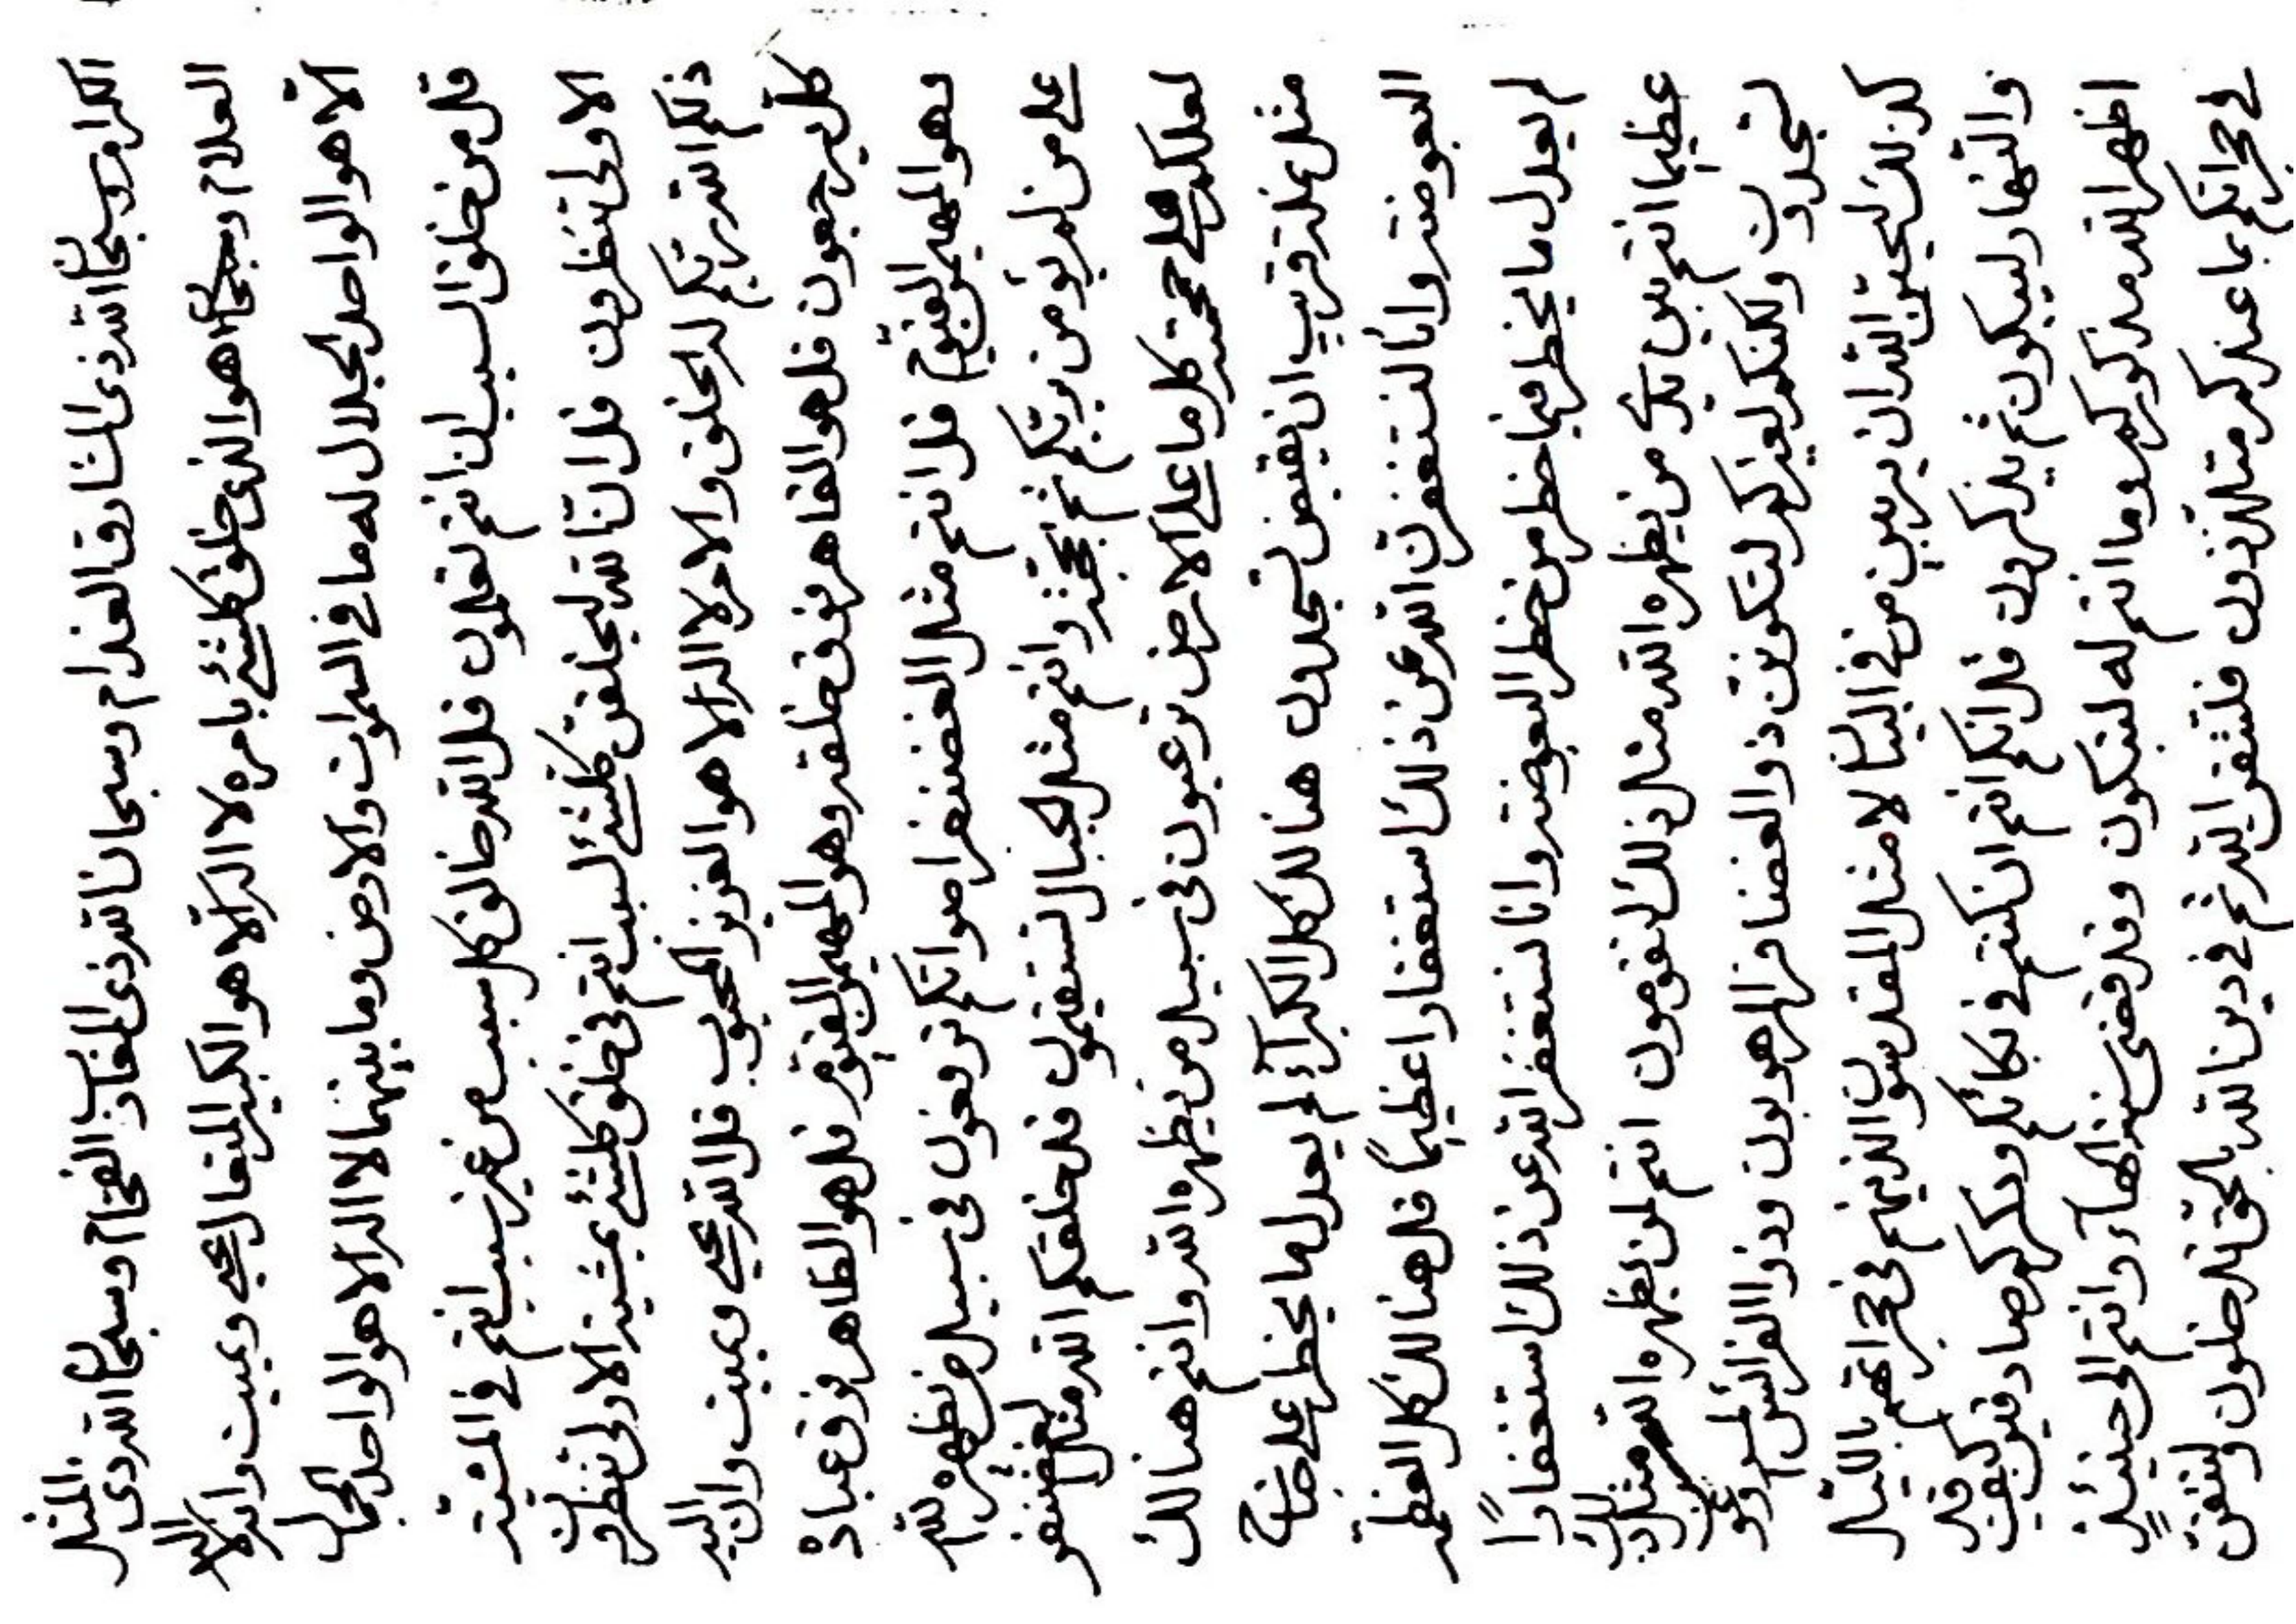 الكرام وسبحان الله ذى المشارق العذام وسبحان الله ذى المغارب الفخام وسبحان الله ذى المثل
العلام وسبحان هو الذى خلق كلشئ بامره لا اله الا هو الكبير المتعال يحيى ويميت وانه لا اله
الا هو الواحد الجلال له ما فى السموات والارض وما بينهما لا اله الا هو الواحد الجمال
قل من خلق السبب ان انتم تعلمون قل الله خالق كل سبب من غير سبب انتم فى المشية
الاولى تنظرون قل انا لله ليخلقن كلشئ لسبب انتم فى خلق كلشئ بمشية الاولى تنظرون
ذلكم الله ربكم له الخلق والامر لا اله الا هو العزيز المحبوب قل الله يحيى ويميت وان اليه
كل يرجعون قل هو القاهر فوق خلقه وهو المهيمن القيوم قل هو الظاهر فوق عباده
وهو المهيمن القيوم قل انتم مثل الغضنفر اصواتكم ترفعون فى سبيل من يظهره الله
على من لم يؤمن بربكم ثم بحجته وانتم مثل الجبال تستقيمون قل خلقكم الله مثل الغضنفر
لعلكم على حجته كل ما على الارض ترعبون فى سبيل من يظهره الله وانتم هنالك
مثل نملة قريب ان يقبض تجدون هنالك كل الكبراء لم يعدل ما يخطر على خباء
البعوضة وانا لنستغفرن الله عن ذلك استغفارا عظيما قل هنالك كل العظمة
لم يعدل ما يخطر فيما خطر من خطر البعوضة وانا نستغفر الله عن ذلك استغفارًا
عظيما انتم بين يدى من يظهره الله مثل ذلك لتقومون انتم لمن يظهره الله مثل ذلك
لتجدون ولكنكم لغيركم لتكونن ذو الغضافر المرهوبون وذو الفرائس
كذلك ليحبن الله ان يربين من فى البيان لا مثل المقدسون الذينهم فى حجراتهم بالليل
والنهار ليبكون ثم يذكرون قل انكم انتم ان كنتم فى بكائكم وذكركم صادقين كيف قد
اظهر الله مذكوركم وما انتم له لتبكون وقد قضى سنة الهاء وانتم الى حينئذ
فى حجراتكم بما عندكم متلذذون فلتتقن الله ثم فى دين الله بالحق تدخلون ولتتقن